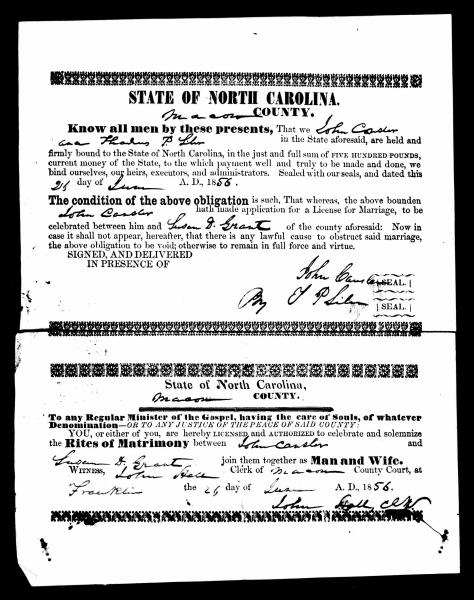 STATE OF NORTH CAROLINA.
Macon COUNTY.
Know all men by these presents, That we John
and Thadius P. are held and
firmly bound to the State of North Carolina, in the just and full sum of FIVE HUNDRED POUNDS,
current money of the State, to the which payment well and truly to be made and done, we
bind ourselves, our heirs, executors, and administrators. Sealed with our seals, and dated this
26 day of A. D., 1856.
The condition of the above obligation is such, That whereas, the above bounden
John hath made application for a License for Marriage, to be
celebrated between him and Susan D. Grant of the county aforesaid: Now in
case it shall not appear, hereafter, that there is any lawful cause to obstruct said marriage,
the above obligation to be void; otherwise to remain in full force and virtue.
SIGNED, AND DELIVERED
IN PRESENCE OF
John SEAL.
By T P SEAL.
State of North Carolina,
Macon COUNTY.
To any Regular Minister of the Gospel, having the care of Souls, of whatever
Denomination—OR TO ANY JUSTICE OF THE PEACE OF SAID COUNTY:
YOU, or either of you, are hereby LICENSED and AUTHORIZED to celebrate and solemnize
the Rites of Matrimony between John and
Susan D. Grant join them together as Man and Wife.
WITNESS, John Hall Clerk of Macon County Court, at
Franklin the 26 day of A. D., 1856.
John Hall Clk